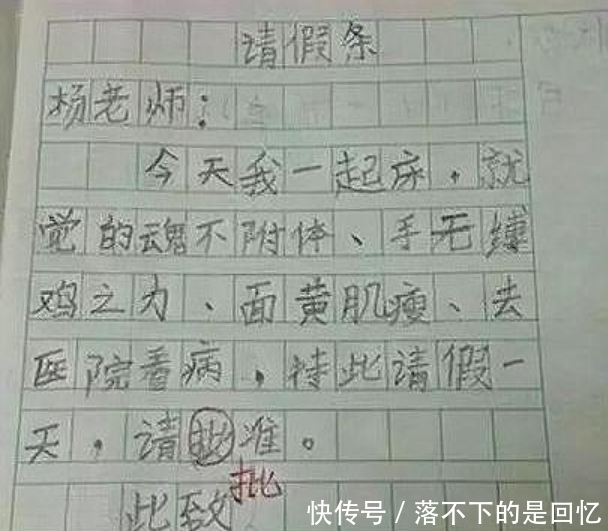 请假条
杨老师：
今天我一起床，就
觉的魂不附体、手无缚
鸡之力、面黄肌瘦、去
医院看病，特此请假一
天，请批准。
批
此致
快传号/落不下的是回忆